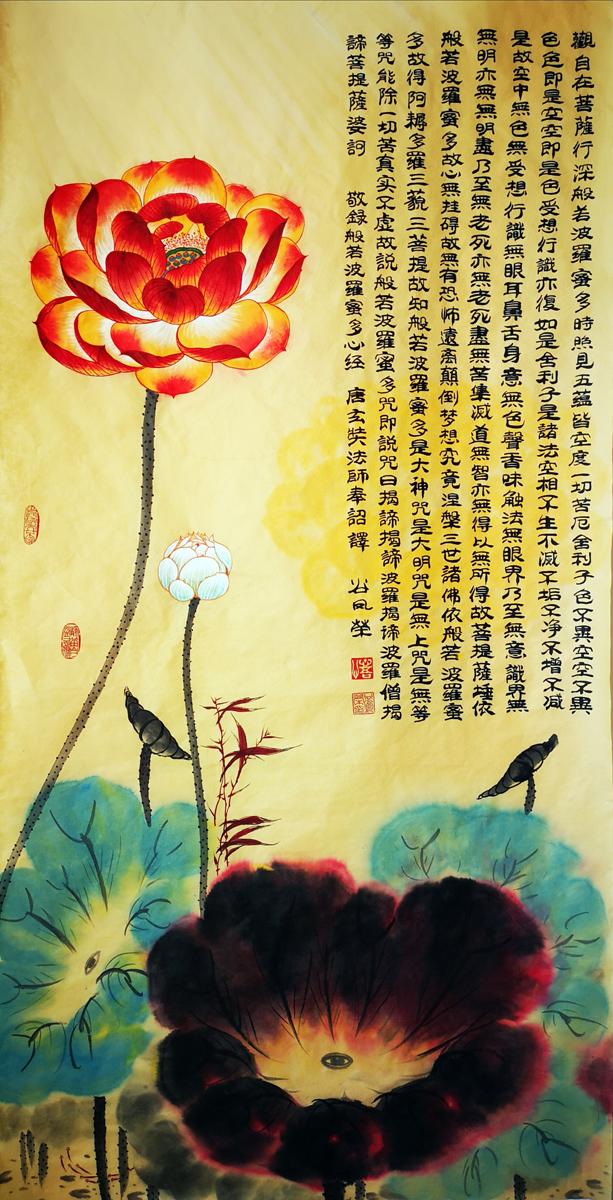 觀自在菩薩行深般若波羅蜜多時照見五蘊皆空度一切苦厄舍利子色不異空空不異
色色即是空空即是色受想行識亦復如是舍利子是諸法空相不生不滅不垢不净不增不減
是故空中無色無受想行識無眼耳鼻舌身意無色聲香味触法無眼界乃至無意識界無
無明亦無無明盡乃至無老死亦無老死盡無苦集滅道無智亦無得以無所得故菩提薩埵依
般若波羅蜜多故心無挂碍故無有恐怖遠离顛倒梦想究竟涅槃三世諸佛依般若波羅蜜
多故得阿耨多羅三藐三菩提故知般若波羅蜜多是大神咒是大明咒是無上咒是無等
等咒能除一切苦真实不虚故説般若波羅蜜多咒即説咒曰揭諦揭諦波羅揭諦波羅僧揭
諦菩提薩婆訶 敬録般若波羅蜜多心经 唐玄奘法師奉詔譯 公凤榮